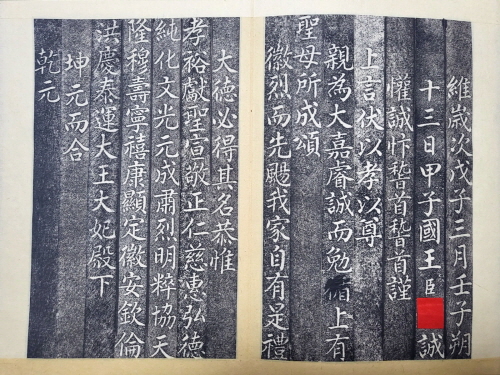 維歲次戊子三月壬子朔
十三日甲子國王臣 誠
懽誠忭稽首稽首謹
上言伏以孝以尊
親為大嘉睿誠而勉循上有
聖母所成頌
徽烈而先颺我家自有是禮
大德必得其名恭惟
孝裕獻聖宣敬正仁慈惠弘德
純化文光元成肅烈明粹協天
隆穆壽寧禧康顯定徽安欽倫
洪慶泰運大王大妃殿下
坤元而合
乾元